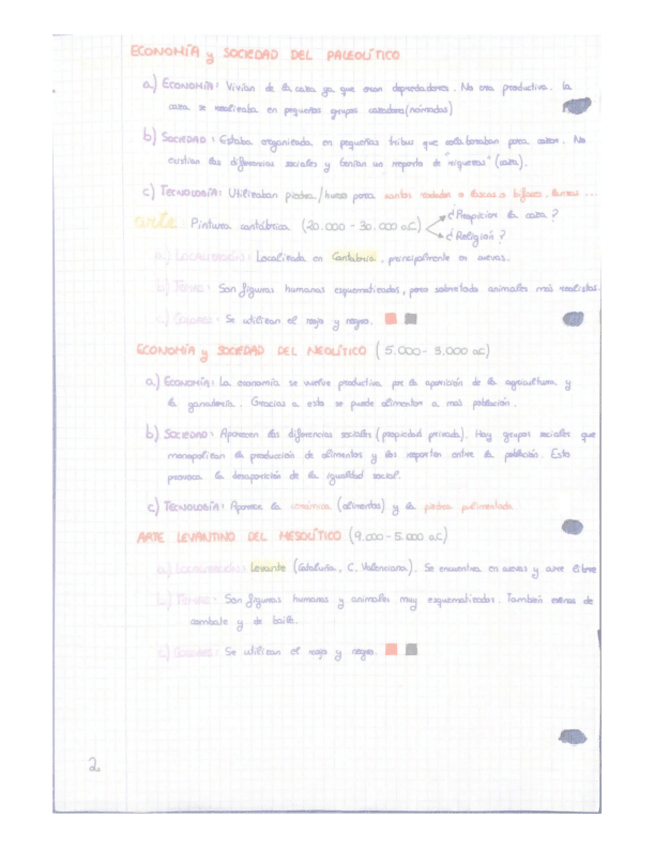 ECONOMÍA y SOCIEDAD DEL PALEOLÍTICO
a) ECONOMÍA: Vivían de la caza ya que eran depredadores. No era productiva. La
caza se realizaba en pequeños grupos cazadores (nómadas)
b) SOCIEDAD: Estaba organizada en pequeñas tribus que colaboraban para cazar. No
existían las diferencias sociales y tenían un reparto de "riquezas" (caza).
c) TECNOLOGÍA: Utilizaban piedra/hueso para cantos rodados o lascas o bifaces, buriles ...
arte: Pintura cantábrica (20.000 - 30.000 a.C) ¿Propiciar la caza?
¿Religión?
a) LOCALIZACIÓN: Localizada en Cantabria, principalmente en cuevas.
b) TEMAS: Son figuras humanas esquematizadas, pero sobretodo animales más realistas.
c) COLORES: Se utilizan el rojo y negro.
ECONOMÍA y SOCIEDAD DEL NEOLÍTICO (5.000 - 3.000 aC)
a) ECONOMÍA: La economía se vuelve productiva por la aparición de la agricultura y
la ganadería. Gracias a esto se puede alimentar a más población.
b) SOCIEDAD: Aparecen las diferencias sociales (propiedad privada). Hay grupos sociales que
monopolizan la producción de alimentos y los reparten entre la población. Esto
provoca la desaparición de la igualdad social.
c) TECNOLOGÍA: Aparece la cerámica (alimentos) y la piedra pulimentada
ARTE LEVANTINO DEL MESOLÍTICO (9.000 - 5.000 a.C)
a) LOCALIZACIÓN: Levante (Cataluña, C. Valenciana). Se encuentra en cuevas y aire libre
b) TEMAS: Son figuras humanas y animales muy esquematizados. También escenas de
combate y de baile.
c) COLORES: Se utilizan el rojo y negro.
2